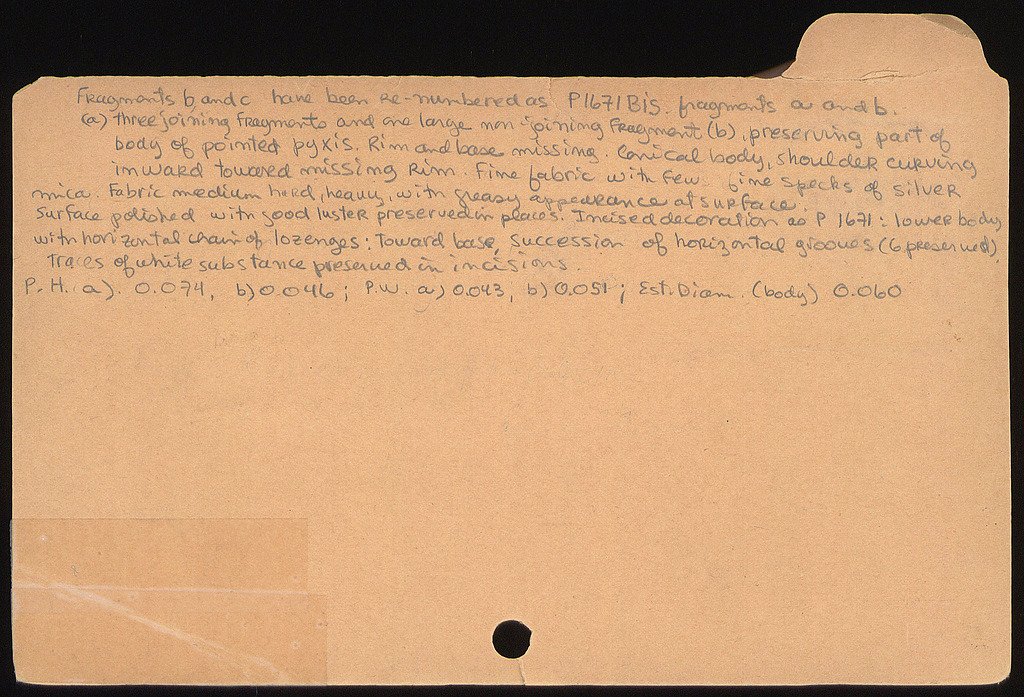 Fragments b and c have been re-numbered as P1671 Bis. fragments a and b.
(a) three joining fragments and one large non-joining fragment (b), preserving part of
body of pointed pyxis. Rim and base missing. Conical body, shoulder curving
inward toward missing rim. Fine fabric with few fine specks of silver
mica. Fabric medium hard, heavy, with greasy appearance at surface.
Surface polished with good luster preserved in places. Incised decoration as P 1671: lower body
with horizontal chain of lozenges: Toward base, succession of horizontal grooves (6 preserved).
Traces of white substance preserved in incisions.
P.H. a). 0.074, b) 0.046; P.W. a) 0.043, b) 0.051; Est. Diam. (body) 0.060